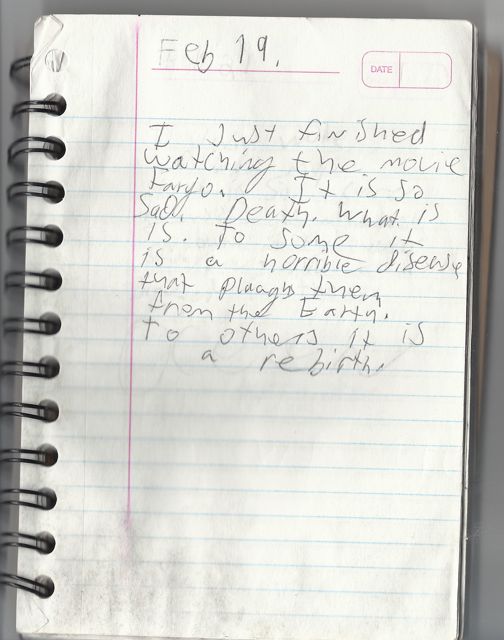 Feb 19.
DATE
I Just finished
watching the movie
Fargo. It is so
Sad. Death. What is
is. To some it
is a horrible disease
that plaughs them
from the Earth.
To others it is
a rebirth.